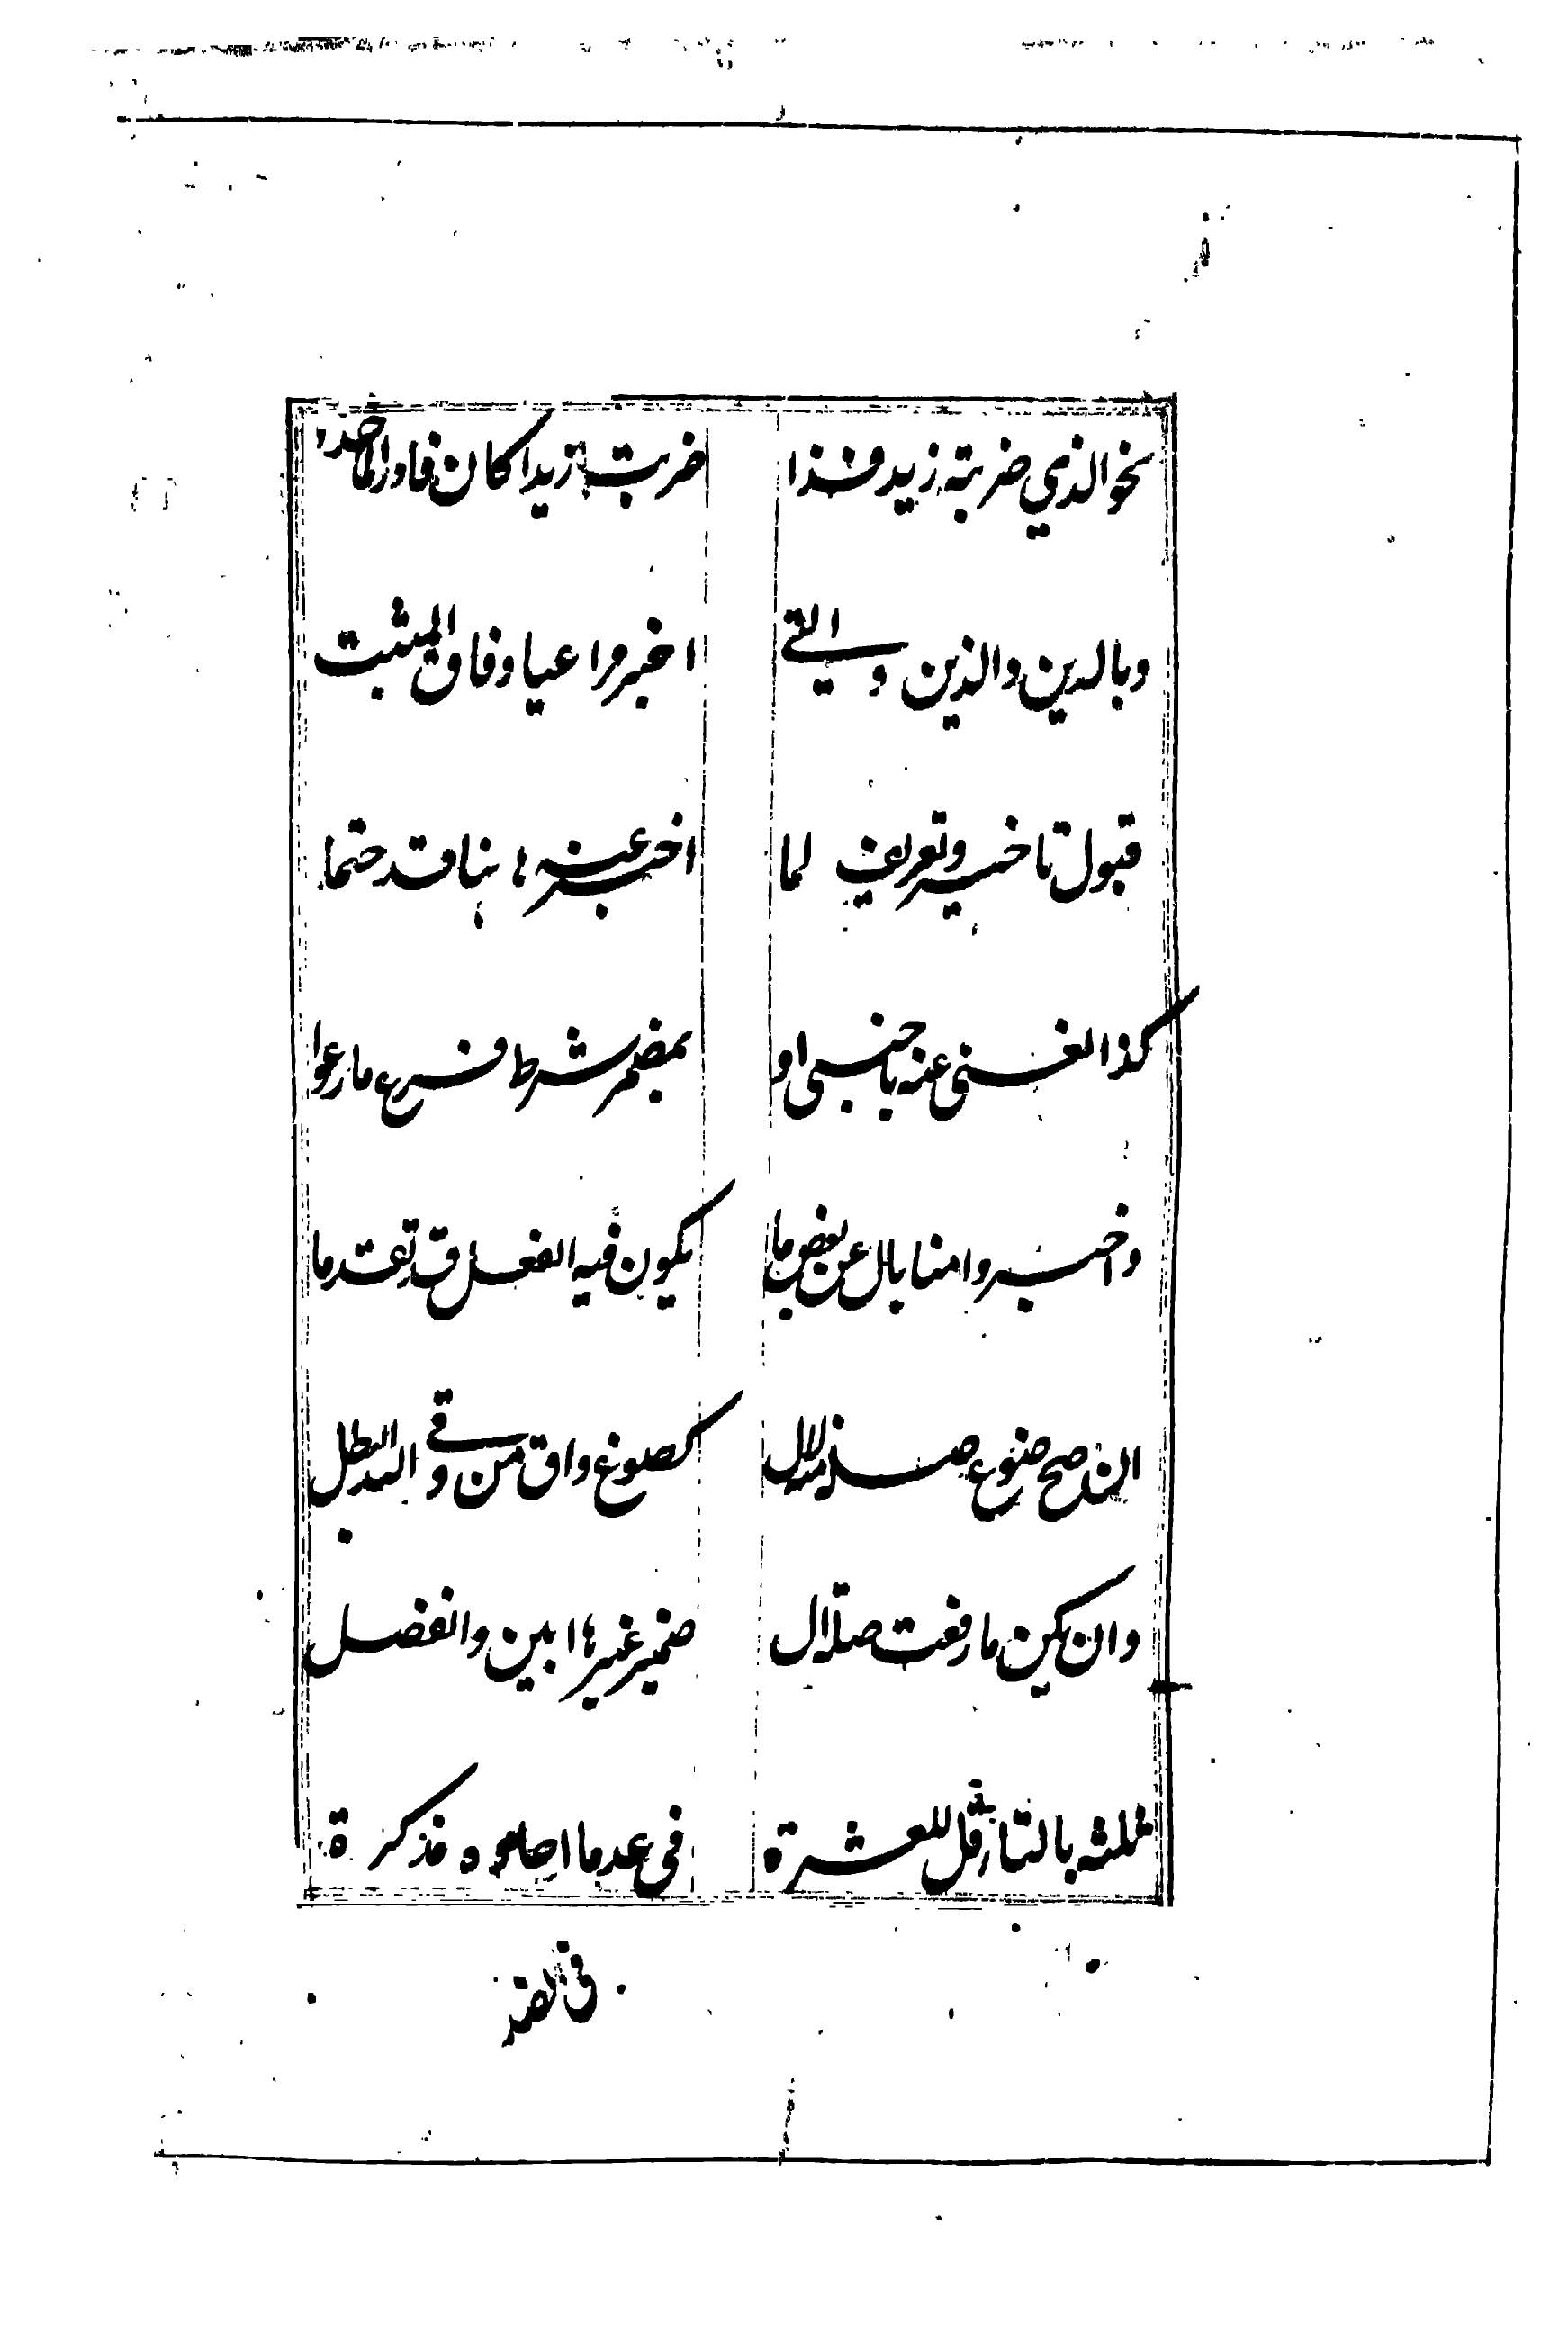 نحو الذي ضربته زيد فذا ضربت زيدا كان فادر الماخذا
وباللذين والذين والتي اخبر مراعيا وفاق المثبت
قبول تاخير وتعريف لما اخبر عنه هاهنا قد حتما
كذا الغنى عنه باجنبي او بمضمر شرط فراع ما رعوا
واخبروا هنا بال عن بعض ما يكون فيه الفعل قد تقدما
ان صح صوغ صلة منه لال كصوغ واق من وقى الله البطل
وان يكن ما رفعت صلة ال ضمير غيرها ابين وانفصل
ثلثة بالتاء قل للعشرة في عد ما احاده مذكرة
في الضد